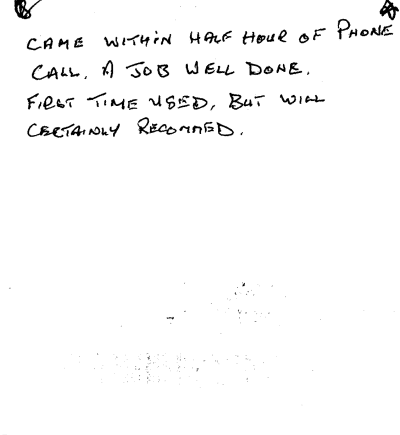 CAME WITHIN HALF HOUR OF PHONE
CALL. A JOB WELL DONE.
FIRST TIME USED, BUT WILL
CERTAINLY RECOMMED.